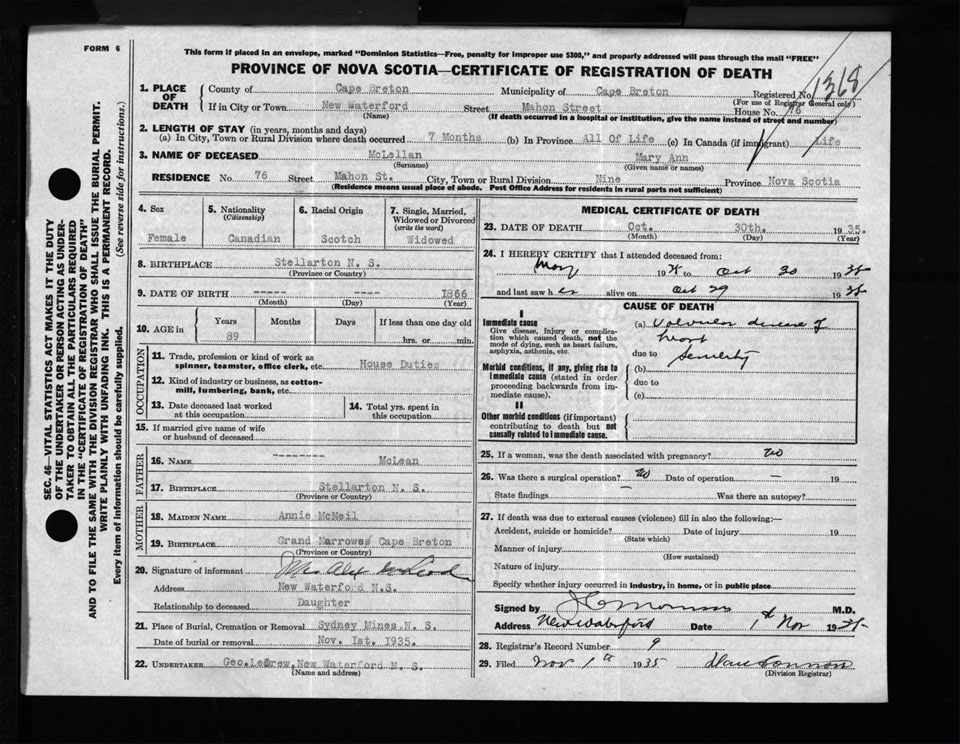 FORM 6
This form if placed in an envelope, marked "Dominion Statistics—Free, penalty for improper use $300," and properly addressed will pass through the mail "FREE"
PROVINCE OF NOVA SCOTIA—CERTIFICATE OF REGISTRATION OF DEATH
1368
1. PLACE OF DEATH { County of Cape Breton Municipality of Cape Breton Registered No.
(For use of Registrar General only)
If in City or Town New Waterford Street Mahon Street House No. 76
(Name) (If death occurred in a hospital or institution, give the name instead of street and number)
2. LENGTH OF STAY (in years, months and days)
(a) In City, Town or Rural Division where death occurred 7 Months (b) In Province All Of Life (c) In Canada (if immigrant) Life
3. NAME OF DECEASED McLellan Mary Ann
(Surname) (Given name or names)
RESIDENCE No. 76 Street Mahon St. City, Town or Rural Division Nine Province Nova Scotia
(Residence means usual place of abode. Post Office Address for residents in rural parts not sufficient)
SEC. 46—VITAL STATISTICS ACT MAKES IT THE DUTY
OF THE UNDERTAKER OR PERSON ACTING AS UNDER-
TAKER TO OBTAIN ALL THE PARTICULARS REQUIRED
IN THE "CERTIFICATE OF REGISTRATION OF DEATH"
AND TO FILE THE SAME WITH THE DIVISION REGISTRAR WHO SHALL ISSUE THE BURIAL PERMIT.
WRITE PLAINLY WITH UNFADING INK. THIS IS A PERMANENT RECORD.
Every item of information should be carefully supplied. (See reverse side for instructions.)
4. Sex
Female
5. Nationality
(Citizenship)
Canadian
6. Racial Origin
Scotch
7. Single, Married,
Widowed or Divorced
(write the word)
Widowed
8. BIRTHPLACE Stellarton N. S.
(Province or Country)
9. DATE OF BIRTH ----- ---- 1866
(Month) (Day) (Year)
10. AGE in Years Months Days If less than one day old
89 hrs. or min.
OCCUPATION
11. Trade, profession or kind of work as
spinner, teamster, office clerk, etc. House Duties
12. Kind of industry or business, as cotton-
mill, lumbering, bank, etc.
13. Date deceased last worked
at this occupation
14. Total yrs. spent in
this occupation
15. If married give name of wife
or husband of deceased
FATHER
16. NAME -------- McLean
17. BIRTHPLACE Stellarton N. S.
(Province or Country)
MOTHER
18. MAIDEN NAME Annie McNeil
19. BIRTHPLACE Grand Narrows Cape Breton
(Province or Country)
20. Signature of informant Mrs Alex McLeod
Address New Waterford N.S.
Relationship to deceased Daughter
21. Place of Burial, Cremation or Removal Sydney Mines N. S.
Date of burial or removal Nov. 1st. 1935.
22. UNDERTAKER Geo. LeDrew, New Waterford N. S.
(Name and address)
MEDICAL CERTIFICATE OF DEATH
23. DATE OF DEATH Oct. 30th. 1935.
(Month) (Day) (Year)
24. I HEREBY CERTIFY that I attended deceased from:
May 1935 to Oct 30 1935
and last saw her alive on Oct 29 1935
CAUSE OF DEATH
I
Immediate cause
Give disease, injury or complica-
tion which caused death, not the
mode of dying, such as heart failure,
asphyxia, asthenia, etc.
(a) Valvular disease of
heart
due to
Morbid conditions, if any, giving rise to
immediate cause (stated in order
proceeding backwards from im-
mediate cause).
(b) Senility
due to
(c)
II
Other morbid conditions (if important)
contributing to death but not
causally related to immediate cause.
25. If a woman, was the death associated with pregnancy? No
26. Was there a surgical operation? No Date of operation — 19
State findings — Was there an autopsy?
27. If death was due to external causes (violence) fill in also the following:—
Accident, suicide or homicide? Date of injury 19
(State which)
Manner of injury
(How sustained)
Nature of injury
Specify whether injury occurred in industry, in home, or in public place
Signed by M.D.
Address New Waterford Date 1st Nov 1935
28. Registrar's Record Number 9
29. Filed Nov 1th 1935
(Division Registrar)